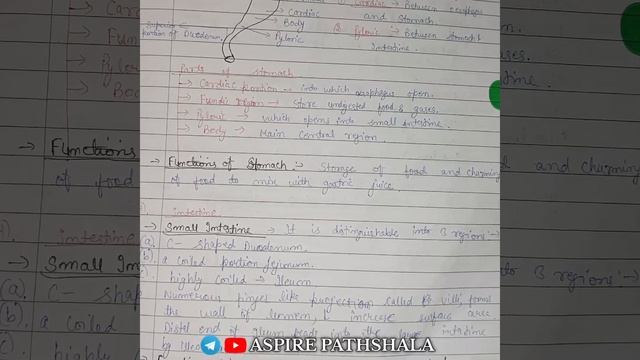 Cardiac → Between esophagus
Cardiac and Stomach.
Body
Pyloric → Between stomach &
Pyloric Intestine.
Superior
portion of Duodenum
Parts of stomach
→ Cardiac portion → into which esophagus open.
→ Fundic region → Store undigested food & gases.
→ Pyloric → which opens into small intestine.
→ Body → Main central region.
→ Functions of Stomach :- Storage of food and churning
of food to mix with gastric juice.
intestine
→ Small Intestine → It is distinguishable into 3 regions :→
(a). C- shaped Duodenum.
(b). a coiled portion Jejunum.
highly coiled → Ileum.
Numerous finger like projection called villi, from
the wall of lumen, increase surface area.
Distal end of Ileum leads into the large intestine
by
ASPIRE PATHSHALA